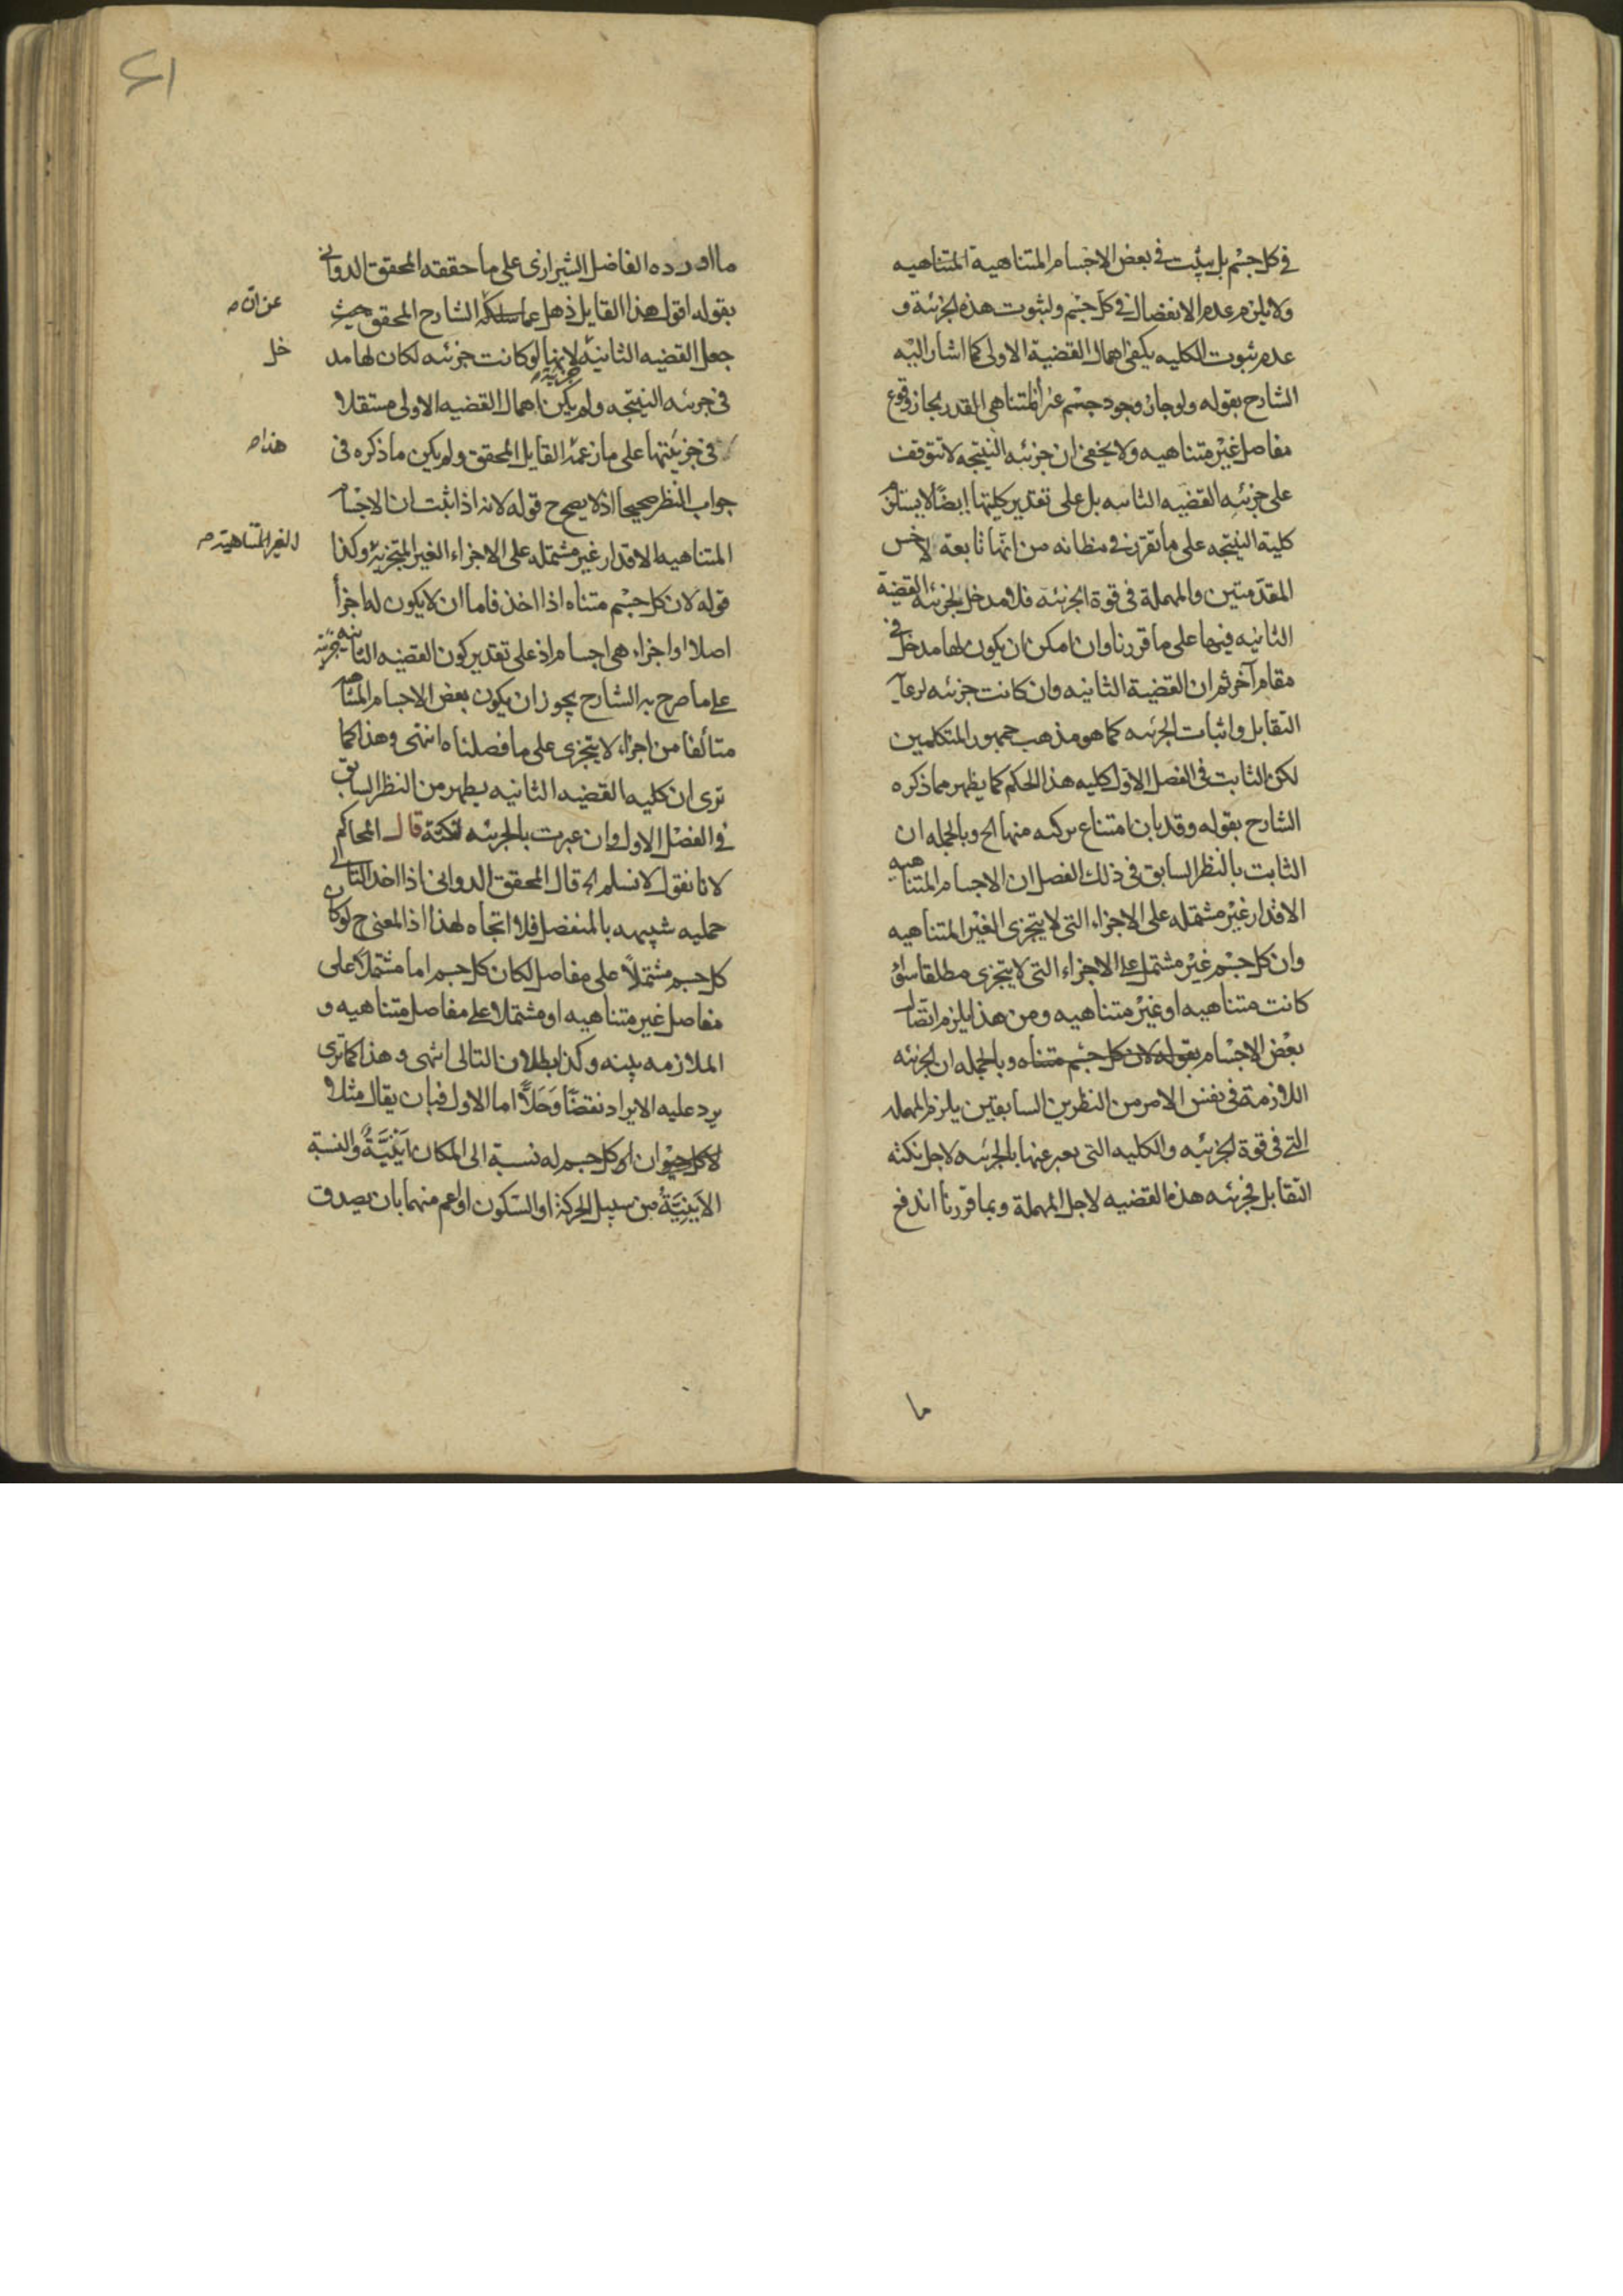 في كل جسم بل يثبت في بعض الاجسام المتناهية المتناهيه
ولا يلزم عدم الانفصال في كل جسم ولثبوت هذه الجزئية و
عدم ثبوت الكليه يكفي اهمال القضية الاولى كما اشار اليه
الشارح بقوله ولو جاز وجود جسم غير المتناهي القدر لجاز وقوع
مفاصل غير متناهيه ولا يخفى ان جزئيه النتيجه لا تتوقف
على جزئيه القضيه الثانيه بل على تقدير كليتها ايضا لا يستلزم
كلية النتيجه على ما تقرر في مظانه من انها تابعة لاخس
المقدمتين والمهملة في قوة الجزئيه فلا مدخل لجزئيه القضية
الثانيه فيها على ما قررنا وان امكن ان يكون لها مدخل في
مقام آخر ثم ان القضية الثانيه وان كانت جزئيه لرعاية
التقابل واثبات الجزئيه كما هو مذهب جمهور المتكلمين
لكن الثابت في الفصل الاول كليه هذا الحكم كما يظهر مما ذكره
الشارح بقوله وقد بان امتناع تركبه منها الخ وبالجمله ان
الثابت بالنظر السابق في ذلك الفصل ان الاجسام المتناهيه
الاقدار غير مشتمله على الاجزاء التي لا يتجزى الغير المتناهيه
وان كل جسم غير مشتمل على الاجزاء التي لا يتجزى مطلقا سواء
كانت متناهيه او غير متناهيه ومن هذا يلزم اتصال
بعض الاجسام بقوله لان كل جسم متناه وبالجمله ان الجزئيه
اللازمة في نفس الامر من النظرين السابقين يلزم المهمله
التي في قوة الجزئيه والكليه التي يعبر عنها بالجزئيه لاجل نكته
التقابل فجزئيه هذه القضيه لاجل المهملة وبما قررنا اندفع
ما
۶۱
ما اورده الفاضل الشيرازي على ما حققه المحقق الدواني
بقوله اقول هذا القايل ذهل عما سلكه الشارح المحقق حيث
عن ان صح
جعل القضيه الثانيه لانها لو كانت جزئيه لكان لها مد
خل
جزئية
في جزئيه النتيجه ولم يكن اهمال القضيه الاولى مستقلا
في جزئيتها على ما زعمه القايل المحقق ولم يكن ما ذكره في
هذا صح
جواب النظر صحيحا اذ لا يصح ح قوله لانه اذا ثبت ان الاجسام
المتناهيه الاقدار غير مشتمله على الاجزاء الغير المتجزيه وكذا
الغير المتناهية صح
قوله لان كل جسم متناه اذا اخذ فاما ان لا يكون له اجزأ
اصلا او اجزاء هي اجسام اذ على تقدير كون القضيه الثانيه جزئية
على ما صرح به الشارح يجوز ان يكون بعض الاجسام المتناهيه
متألفا من اجزاء لا يتجزى على ما فصلناه انتهى وهذا كما
ترى ان كليه القضيه الثانيه يظهر من النظر السابق
في الفصل الاول وان عبرت بالجزئيه لنكتة قال المحاكم
لانا نقول لا نسلم الخ قال المحقق الدواني اذا اخذ التالي
حمليه شبيهه بالمنفصل فلا اتجاه لهذا اذ المعنى ح لو كان
كل جسم مشتملا على مفاصل لكان كل جسم اما مشتملا على
مفاصل غير متناهيه او مشتملا على مفاصل متناهيه و
الملازمه بينه وكذا بطلان التالي انتهى وهذا كما ترى
يرد عليه الايراد نقضا وحلا اما الاول فبان يقال مثلا
لا كل حيوان او كل جسم له نسبة الى المكان اينية والنسبة
الاينية من سبيل الحركة او السكون او اعم منهما بان يصدق